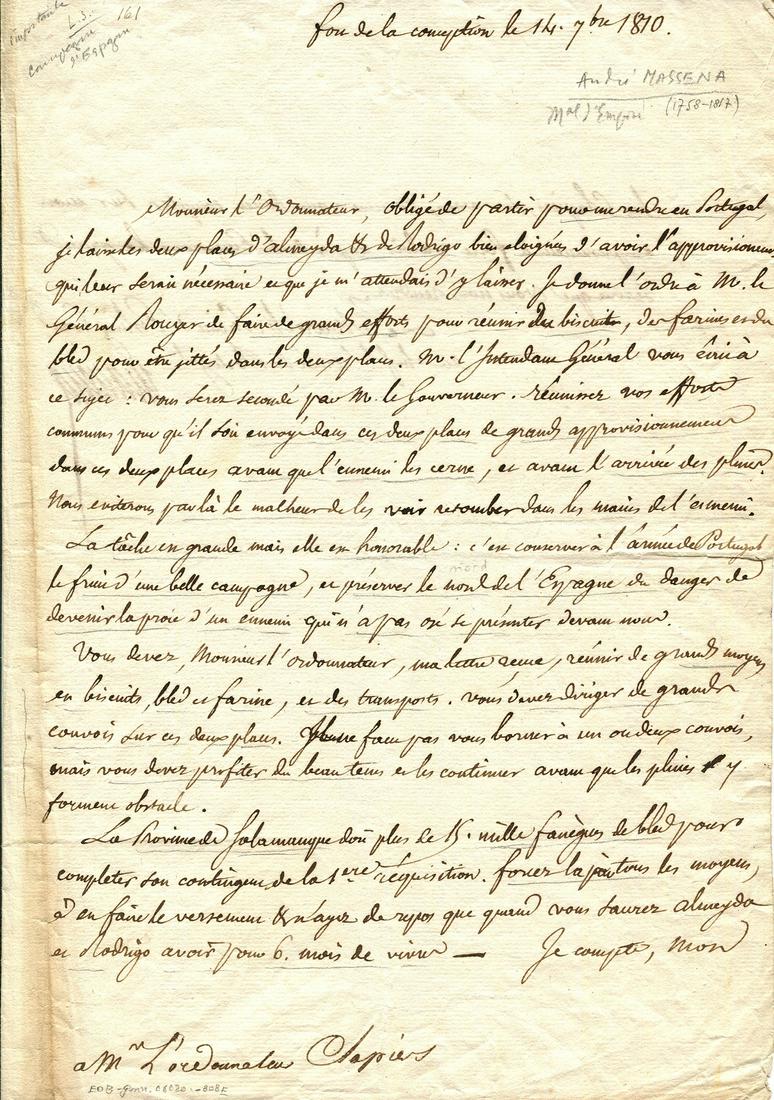 importante L.S. 161
Campagne
d'Espagne
fort de la conception le 14. 7bre 1810.
André MASSENA
Mal d'Empire (1758-1817)
Monsieur l'Ordonnateur, obligé de partir pour me rendre en Portugal,
je laisse les deux places d'almeyda & de Rodrigo bien eloignées d'avoir l'approvisionnement
qui leur serait nécessaire et que je m'attendais d'y laisser. Je donne l'ordre à M. le
Général de faire de grands efforts pour réunir des biscuits, des farines et du
bled pour être jettés dans les deux places. M. l'Intendant Général vous écrit à
ce sujet : vous serez secondé par M. le Gouverneur. réunissez vos efforts
communs pour qu'il soit envoyé dans ces deux places de grands approvisionnements
dans ces deux places avant que l'ennemi les cerne, et avant l'arrivée des pluies.
Nous eviterons par là le malheur de les voir retomber dans les mains de l'ennemi.
La tâche est grande mais elle est honorable : c'est conserver à l'armée de Portugal
nord
le fruit d'une belle campagne, et préserver le nord de l'Espagne du danger de
devenir la proie d'un ennemi qui n'a pas osé se présenter devant nous.
Vous devez, Monsieur l'ordonnateur, ma lettre reçue, réunir de grands moyens
en biscuits, bled et farine, et des transports. vous devez diriger de grands
convois sur ces deux places. Il ne faut pas vous borner à un ou deux convois,
mais vous devez profiter du beau tems et les continuer avant que les pluies y
forment obstacle.
La Province de Salamanque doit plus de 15. mille fanègues de bled pour
completer son contingent de la 1ere réquisition. forcez la par tous les moyens,
à en faire le versement & n'ayez de repos que quand vous saurez almeyda
et Rodrigo avoir pour 6. mois de vivres — Je compte, Mons
a Mr L'ordonnateur Clapiers